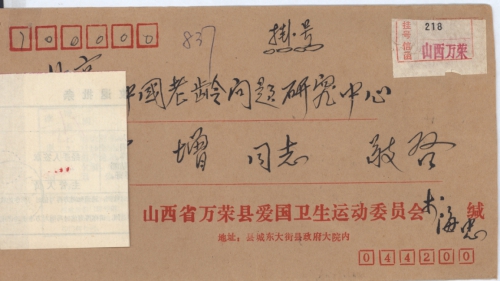 100000
837
掛号
挂号信函
218
山西万荣
北京
中國老龄问题研究中心
增 同志 敬啓
山西省万荣县爱国卫生运动委员会 木海忠 缄
地址：县城东大街县政府大院内
044200